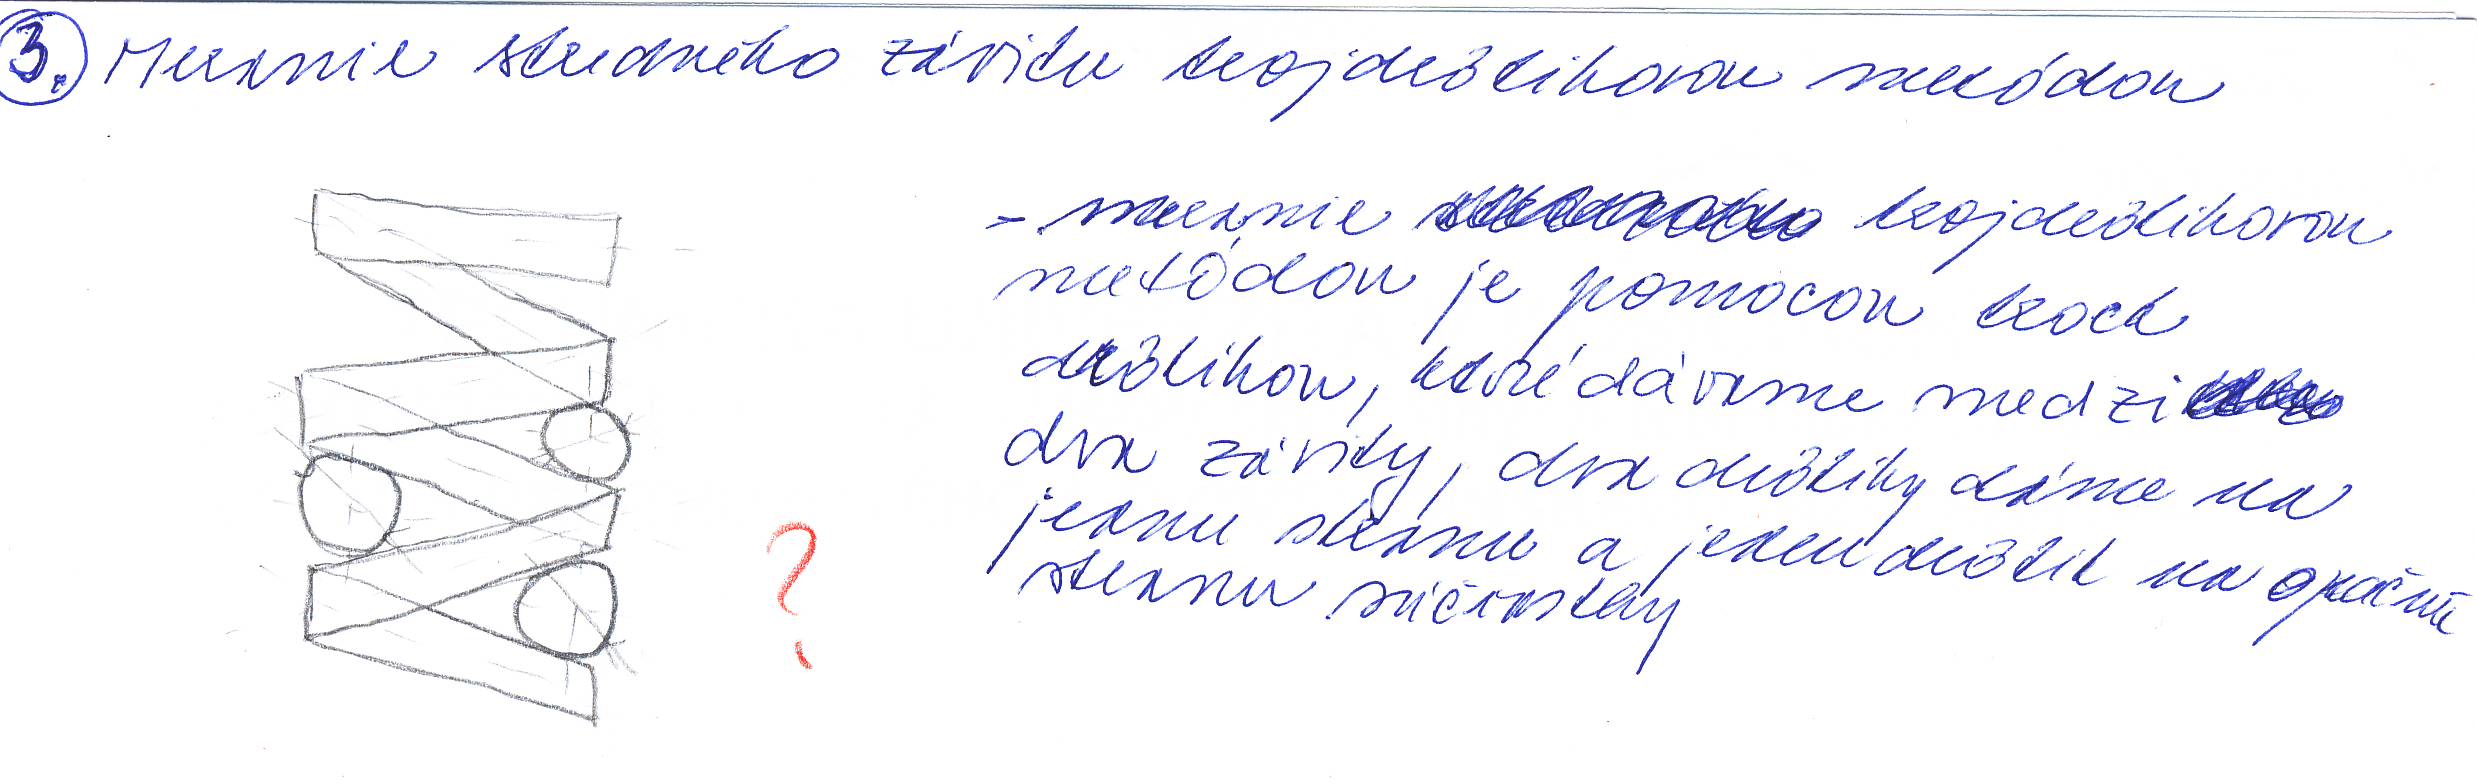 3. Meranie stredného závitu trojdrôtikovou metódou
- meranie trojdrôtikovou
metódou je pomocou troch
drôtikov, ktoré dávame medzi
dva závity, dva drôtiky dáme na
jednu stranu a jeden drôtik na opačnú
stranu súčiastky
?